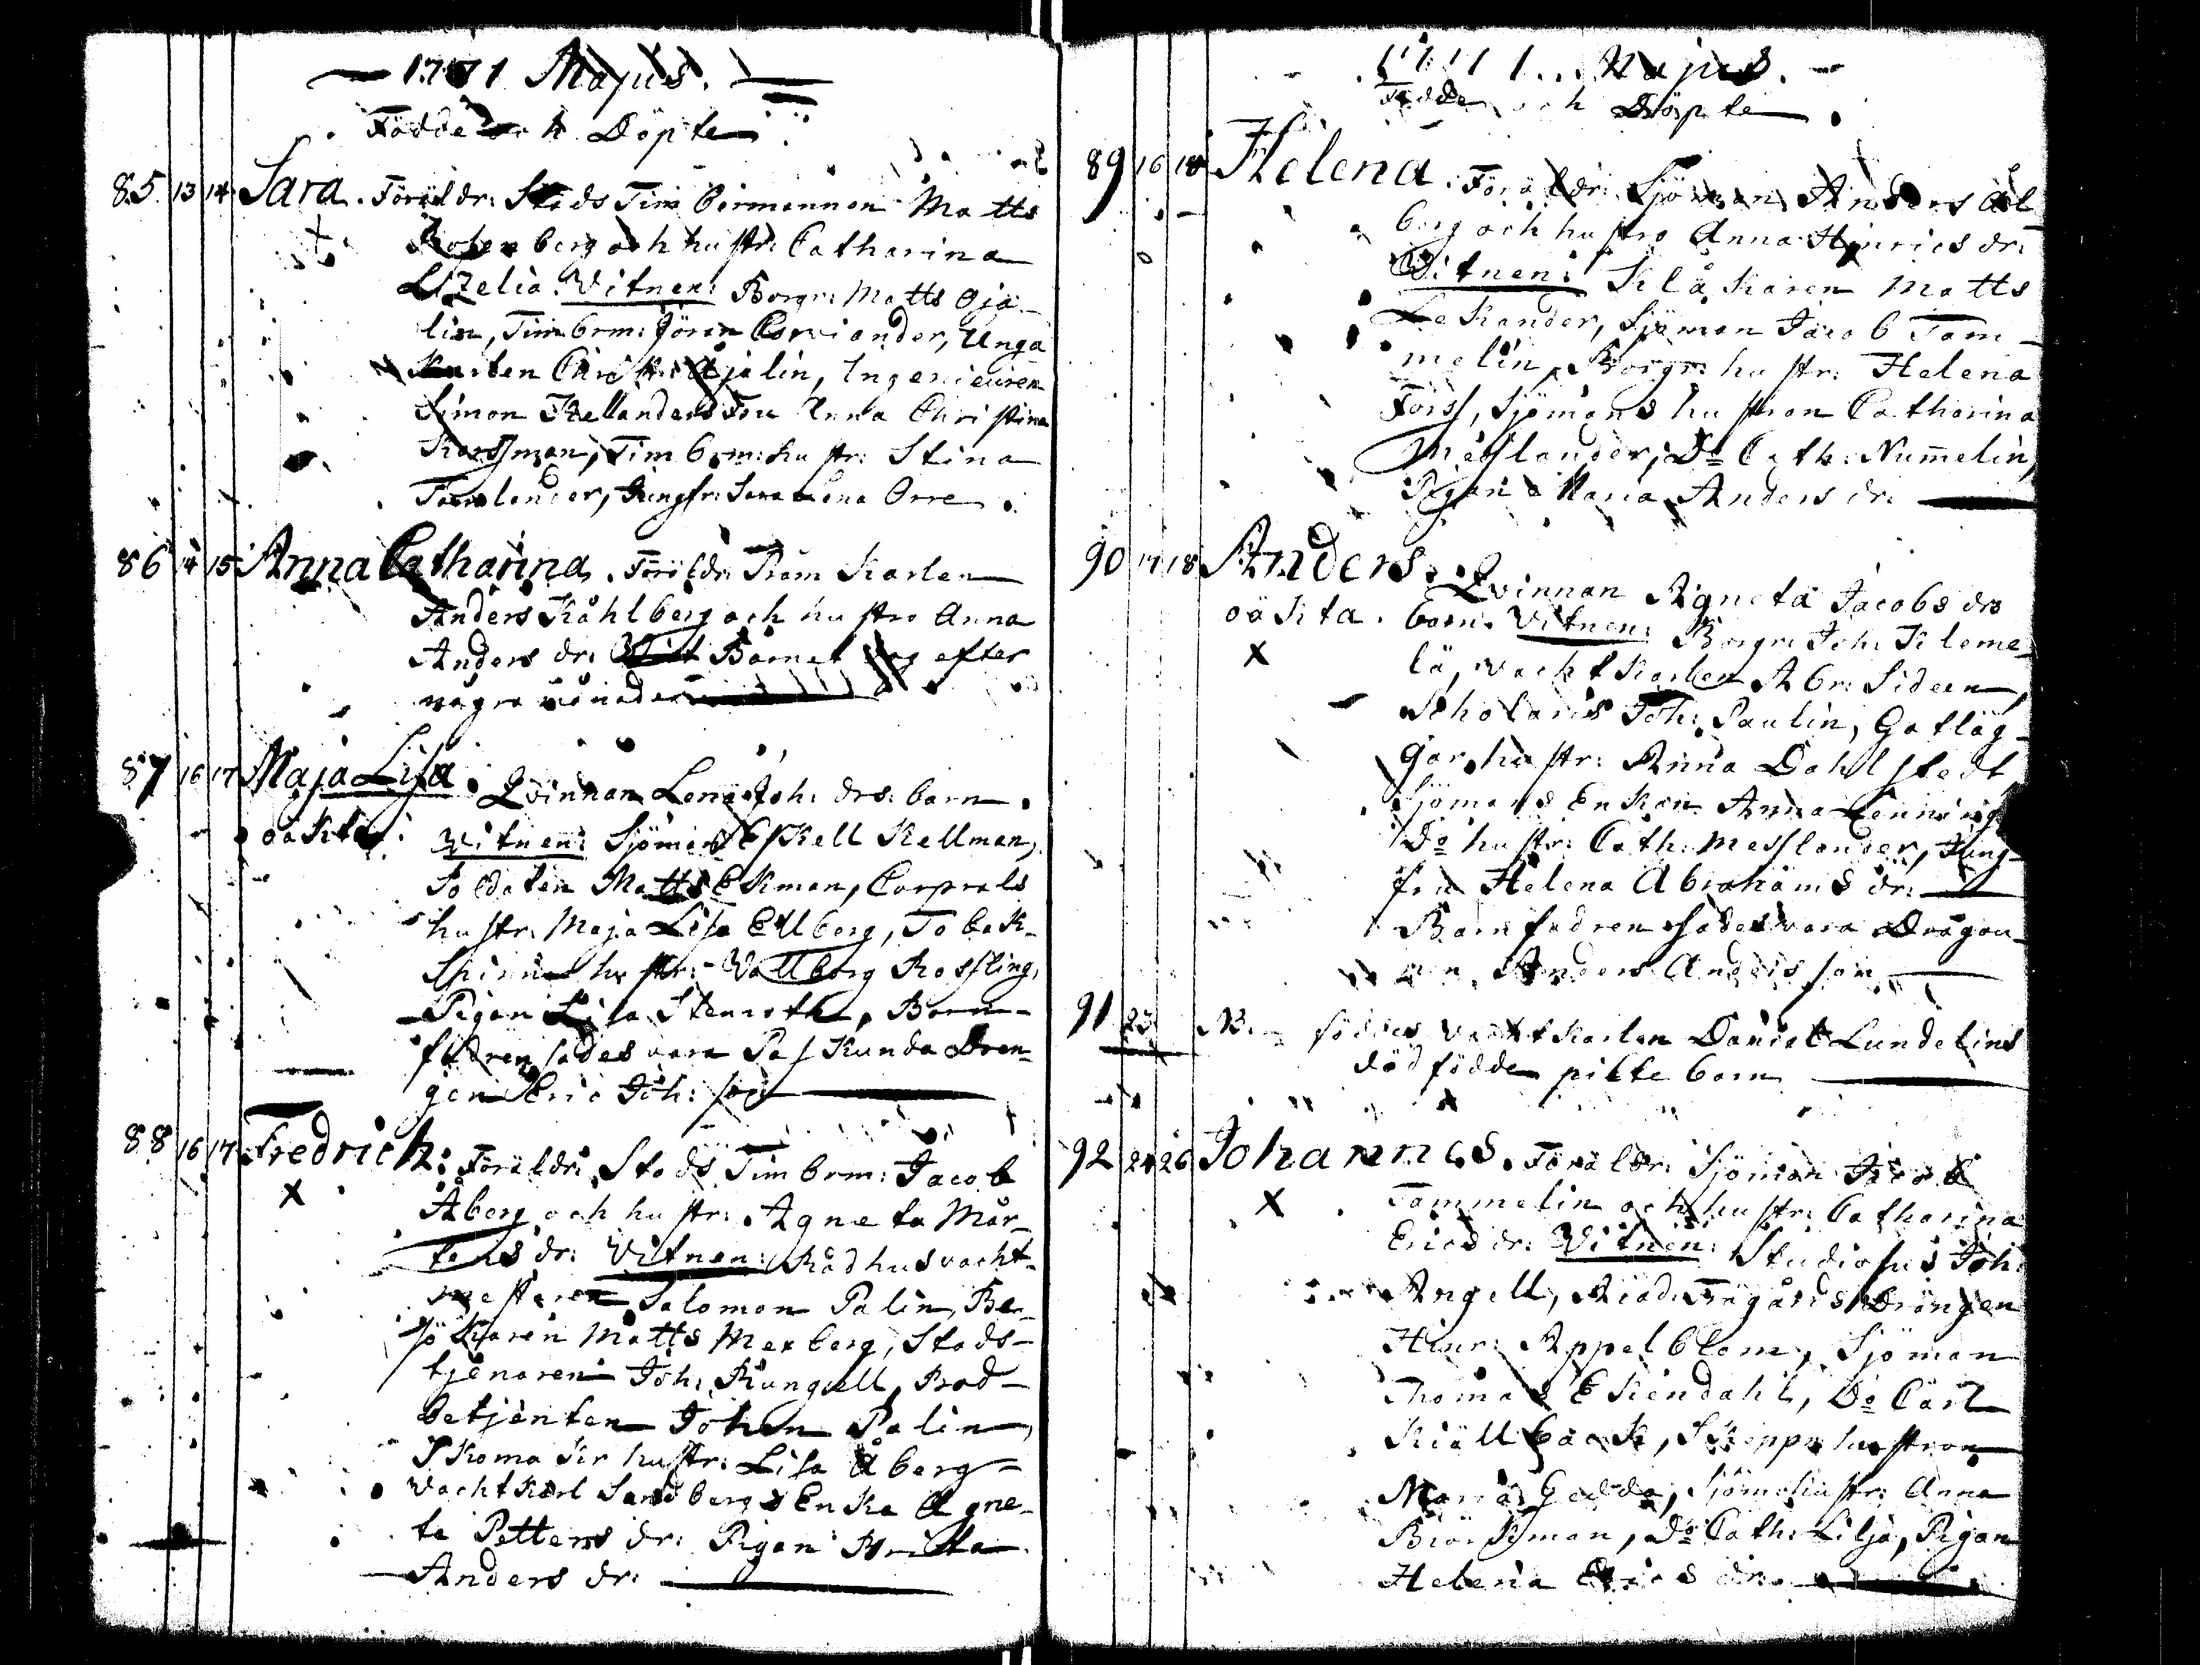 Majus.
Födde och Döpte
85 13 14 Sara. Föräldr: Stads Timbermannen Matts
Rosenberg och hustr: Catharina
Lizelia. Vitnen: Borgr: Matts Oja-
lin, Timbrm: Jöran Corviander, Unga
Karlen Christ: Ojalin, Ingenieuren
Simon Kellanders Fru Anna Christina
Timbrm: hustr: Stina
Jungfr: Sara Lena Orre.
86 14 15 Anna Catharina. Föräldr: Präm Karlen
Anders Kåhlberg och hustro Anna
Anders dr: Barnet efter
några månader
87 16 17 Maja Lisa. Qvinnan Lena Joh: drs: barn.
oäkta. Vitnen: Sjöman Eskell Kellman,
Soldaten Matts Ekman, Corprals
hustr: Maja Lisa Ellberg, Tobak-
Spinnar hustr: Vallborg Rossling,
Pigan Lisa Stenroth, Barn-
fadren sades vara Paskunda Dren-
gen Eric Joh: son
88 16 17 Fredrich: Föräldr: Stads Timbrm: Jacob
X Åberg och hustr: Agneta Mår-
tens dr: Vitnen: Rådhusvacht-
mestaren Salomon Palin, Be-
sökaren Matts Maxberg, Stads-
tjenaren Joh: Rungell, Rad-
betjenten Johan Palin,
Skomakr hustr: Lisa Åberg
Vachtkarl Sandbergs Enka Agne-
ta Petters dr: Pigan Britta
Anders dr:
Majus.
Födde och Döpte
89 16 18 Helena. Föräldr: Sjöman Anders Ål-
berg och hustro Anna Hinrics dr:
Vitnen: Klåkaren Matts
Lekander, Sjöman Jacob Tam-
melin, Borgr: hustr: Helena
Forss, Sjömans hustron Catharina
Messlander, Do Cath: Numelin,
Pigan Maria Anders dr:
90 17 18 Anders. Qvinnan Agneta Jacobs drs
oäkta. barn. Vitnen: Borgr: Joh: Kleme-
X lä, Vachtkarlen Abr: Sideen,
Scholaris Joh: Paulin, Gatläg-
gar hustr: Anna Dahlstedt
Sjömans Enkan Anna Lenning
Do hustr: Cath: Messlander, Jung-
fru Helena Abrahams dr:
Barnfadren sades vara Dragou-
nen Anders Anders son
91 23 NB. föddes Vachtkarlen Daniel Lundelins
dödfödde pilte barn
92 24 26 Johannes. Föräldr: Sjöman Jacob
X Tammelin och hustr: Catharina
Erics dr: Vitnen: Studiosus Joh:
Angell, Trägårds Drängen
Hinr: Appelblom, Sjöman
Thomas Ekendahl, Do Carl
Kiällback, Skeppr hustron
Maria Gadda, Sjöm: hustr: Anna
Biörkman, Do Cath: Lilja, Pigan
Helena Erics dr: